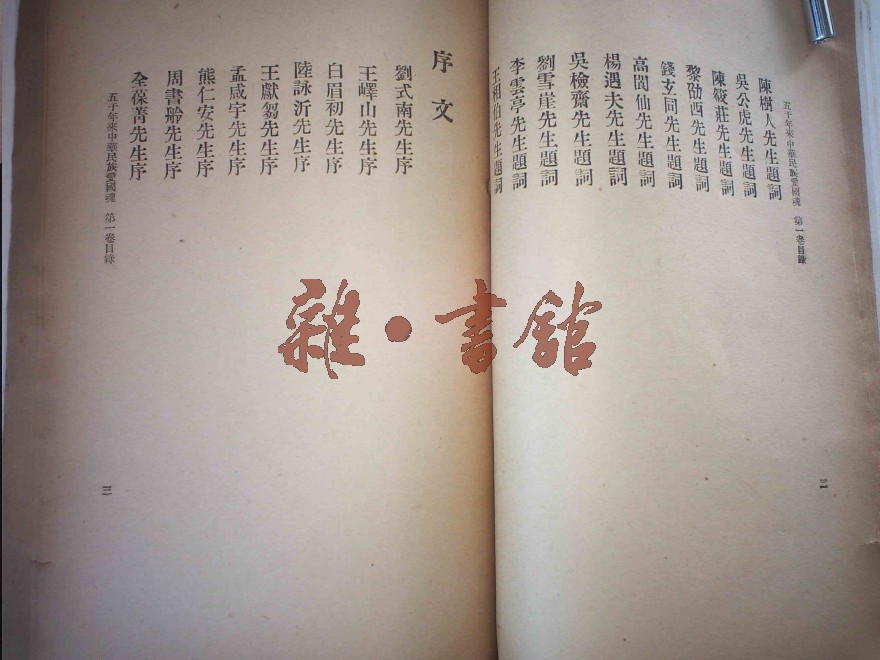 五千年來中華民族愛國魂 第一卷目錄
陳樹人先生題詞
吳公虎先生題詞
陳筱莊先生題詞
黎劭西先生題詞
錢玄同先生題詞
高閬仙先生題詞
楊遇夫先生題詞
吳檢齋先生題詞
劉雪崖先生題詞
李雲亭先生題詞
王相伯先生題詞
二
序文
劉式南先生序
王嶧山先生序
白眉初先生序
陸詠沂先生序
王獻芻先生序
孟咸宇先生序
熊仁安先生序
周書舲先生序
全葆菁先生序
五千年來中華民族愛國魂 第一卷目錄
三
雜·書館